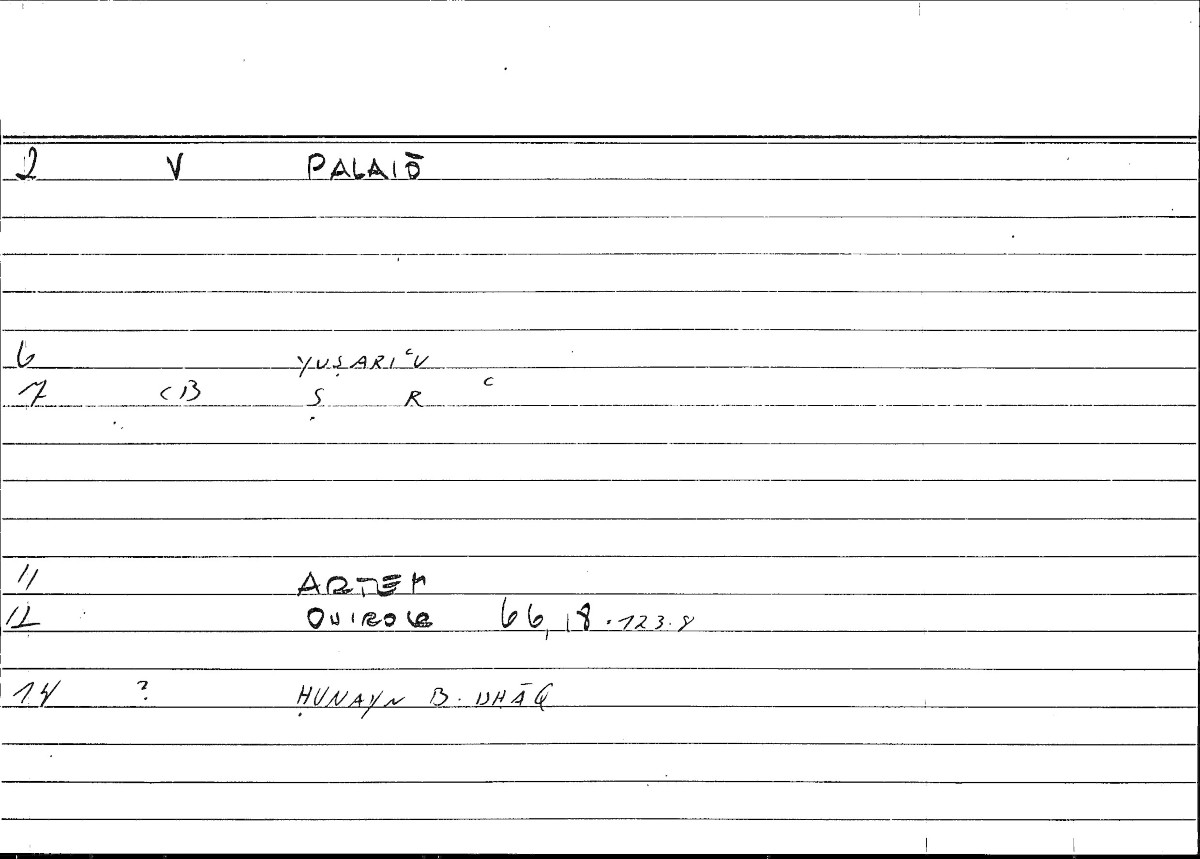 2 V PALAIŌ
6 YUṢARIʿU
7 CB Ṣ R ʿ
11 ARTEM
12 ONIROCR 66,18.123.8
14 ? ḤUNAYN B. ISHĀQ